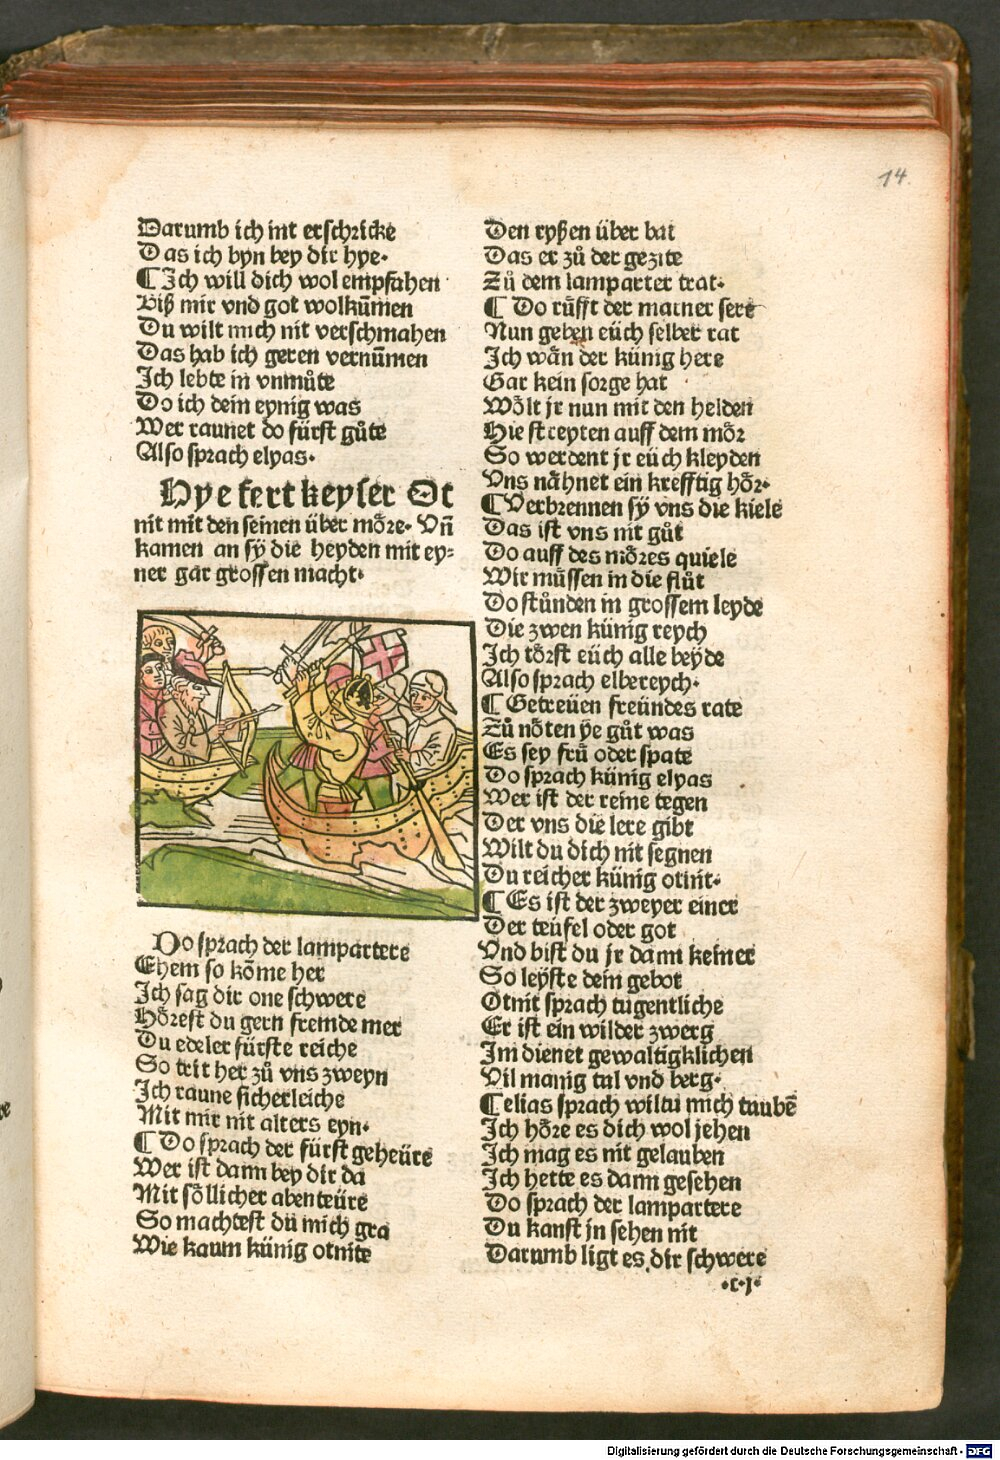 14.
Darumb ich int erschricke
Das ich byn bey dir hye.
¶ Ich will dich wol empfahen
Biß mir vnd got wolkūmen
Du wilt mich nit verschmahen
Das hab ich geren vernūmen
Ich lebte in vnmůte
Do ich dein eynig was
Wer raunet do fürst gůte
Also sprach elyas.
Hye fert keyser Ot
nit mit den seinen über möre. Vñ
kamen an sÿ die heyden mit ey=
ner gar grossen macht.
Do sprach der lampartere
Ehem so köme her
Ich sag dir one schwere
Hörest du gern fremde mer
Du edeler fürste reiche
So trit her zů vns zweyn
Ich raune sicherleiche
Mit mir nit alters eyn.
¶ Do sprach der fürst geheüre
Wer ist dann bey dir da
Mit söllicher abenteüre
So machtest du mich gra
Wie kaum künig otnite
Den ryßen über bat
Das er zů der gezite
Zů dem lamparter trat.
¶ Do růfft der marner sere
Nun geben eüch selber rat
Ich wän der künig here
Gar kein sorge hat
Wölt jr nun mit den helden
Hie streyten auff dem mör
So werdent jr eüch kleyden
Vns nähnet ein krefftig hör.
¶ Verbrennen sÿ vns die kiele
Das ist vns nit gůt
Do auff des möres quiele
Wir müssen in die flůt
Do stůnden in grossem leyde
Die zwen künig reych
Ich törst eüch alle beyde
Also sprach elbereych.
¶ Getreüen freündes rate
Zů nöten ye gůt was
Es sey frů oder spate
Do sprach künig elyas
Wer ist der reine tegen
Der vns die lere gibt
Wilt du dich nit segnen
Du reicher künig otnit.
¶ Es ist der zweyer einer
Der teüfel oder got
Vnd bist du jr dann keiner
So leyste dein gebot
Otnit sprach tugentliche
Er ist ein wilder zwerg
Im dienet gewaltigklichen
Vil manig tal vnd berg.
¶ elias sprach wiltu mich taubē
Ich höre es dich wol jehen
Ich mag es nit gelauben
Ich hette es dann gesehen
Do sprach der lampartere
Du kanst jn sehen nit
Darumb ligt es dir schwere
.c.j.
Digitalisierung gefördert durch die Deutsche Forschungsgemeinschaft - DFG